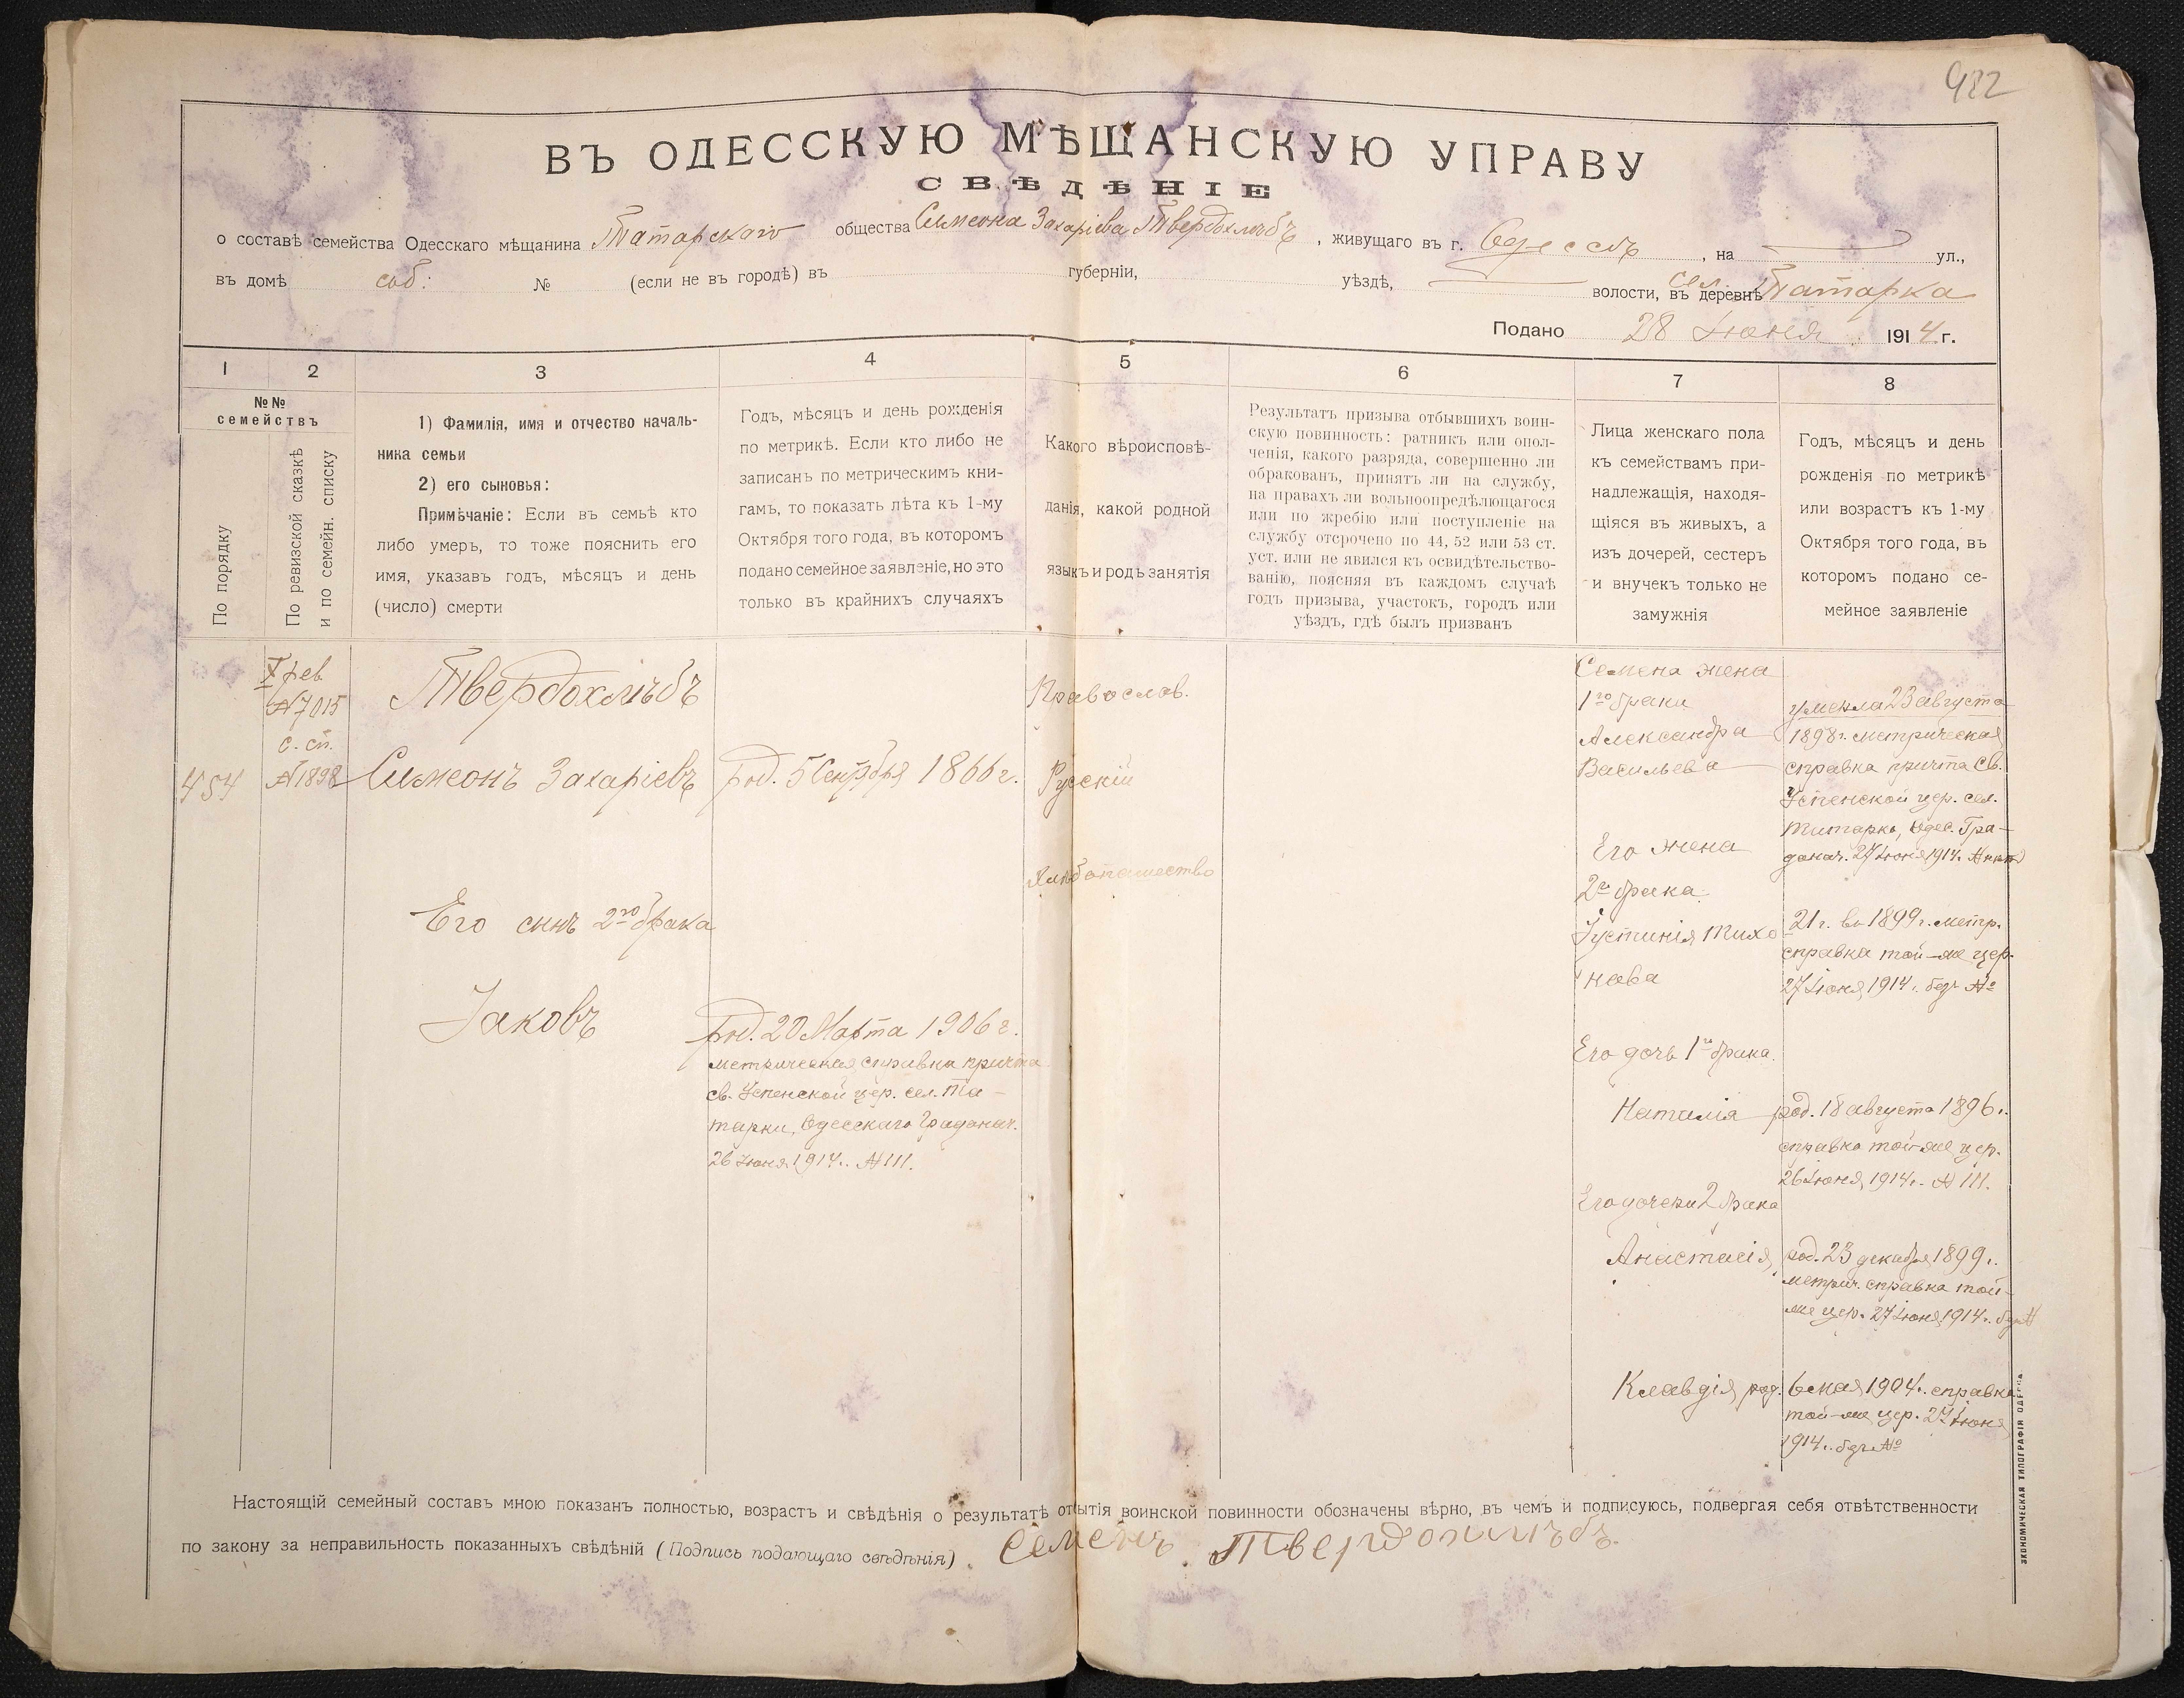 422
ВЪ ОДЕССКУЮ МѢЩАНСКУЮ УПРАВУ
СВѢДѢНІЕ
о составѣ семейства Одесскаго мѣщанина Татарскаго общества Симеона Захаріева Твердохлѣбъ, живущаго въ г. Одессѣ, на ул.,
въ домѣ соб: № (если не въ городѣ) въ губерніи, уѣздѣ, волости, въ деревнѣ сел. Татарка
Подано 28 Іюня 1914 г.
1 2 3 4 5 6 7 8
№№
семействъ
По порядку
По ревизской сказкѣ
и по семейн. списку
1) Фамилія, имя и отчество началь-
ника семьи
2) его сыновья:
Примѣчаніе: Если въ семьѣ кто
либо умеръ, то тоже пояснить его
имя, указавъ годъ, мѣсяцъ и день
(число) смерти
Годъ, мѣсяцъ и день рожденія
по метрикѣ. Если кто либо не
записанъ по метрическимъ кни-
гамъ, то показать лѣта къ 1-му
Октября того года, въ которомъ
подано семейное заявленіе, но это
только въ крайнихъ случаяхъ
Какого вѣроисповѣ-
данія, какой родной
языкъ и родъ занятія
Результатъ призыва отбывшихъ воин-
скую повинность: ратникъ или опол-
ченія, какого разряда, совершенно ли
обракованъ, принятъ ли на службу,
на правахъ ли вольноопредѣлющагося
или по жребію или поступленіе на
службу отсрочено по 44, 52 или 53 ст.
уст. или не явился къ освидѣтельство-
ванію, поясняя въ каждомъ случаѣ
годъ призыва, участокъ, городъ или
уѣздъ, гдѣ былъ призванъ
Лица женскаго пола
къ семействамъ при-
надлежащія, находя-
щіяся въ живыхъ, а
изъ дочерей, сестеръ
и внучекъ только не
замужнія
Годъ, мѣсяцъ и день
рожденія по метрикѣ
или возрастъ къ 1-му
Октября того года, въ
которомъ подано се-
мейное заявленіе
454
X рев
№7015
с. сп.
№1898
Твердохлѣбъ
Симеонъ Захаріевъ
Его сынъ 2го брака
Іаковъ
род. 5 Сентября 1866 г.
род. 20 Марта 1906 г.
метрическая справка причта
св. Успенской цер. сел. Та-
тарки, Одесскаго Градонач.
26 Іюня 1914 г. №111.
Православ.
Русскій
Хлѣбопашество
Семена жена
1го брака
Александра
Васильева
Его жена
2го брака
Іустинія Тихо
нова
Его дочь 1го брака.
Наталія
Его дочери 2 брака
Анастасія
Клавдія
умерла 23 августа
1898 г. метрическая
справка причта Св.
Успенской цер. сел.
Татарка, Одес. Гра-
донач. 27 Іюня 1914 г.
21 г. въ 1899 г. метр.
справка той-же цер.
27 Іюня 1914 г. безъ №
род. 18 августа 1896 г.
справка той-же цер.
26 Іюня 1914 г. №111.
род. 23 декабря 1899 г.
метрич. справка той-
же цер. 27 Іюня 1914 г. безъ №
род. 6 мая 1904 г. справка
той-же цер. 27 Іюня
1914 г. безъ №
Настоящій семейный составъ мною показанъ полностью, возрастъ и свѣдѣнія о результатѣ отбытія воинской повинности обозначены вѣрно, въ чемъ и подписуюсь, подвергая себя отвѣтственности
по закону за неправильность показанныхъ свѣдѣній (Подпись подающаго свѣдѣнія). Семенъ Твердохлѣбъ.
ЭКОНОМИЧЕСКАЯ ТИПОГРАФІЯ ОДЕССА